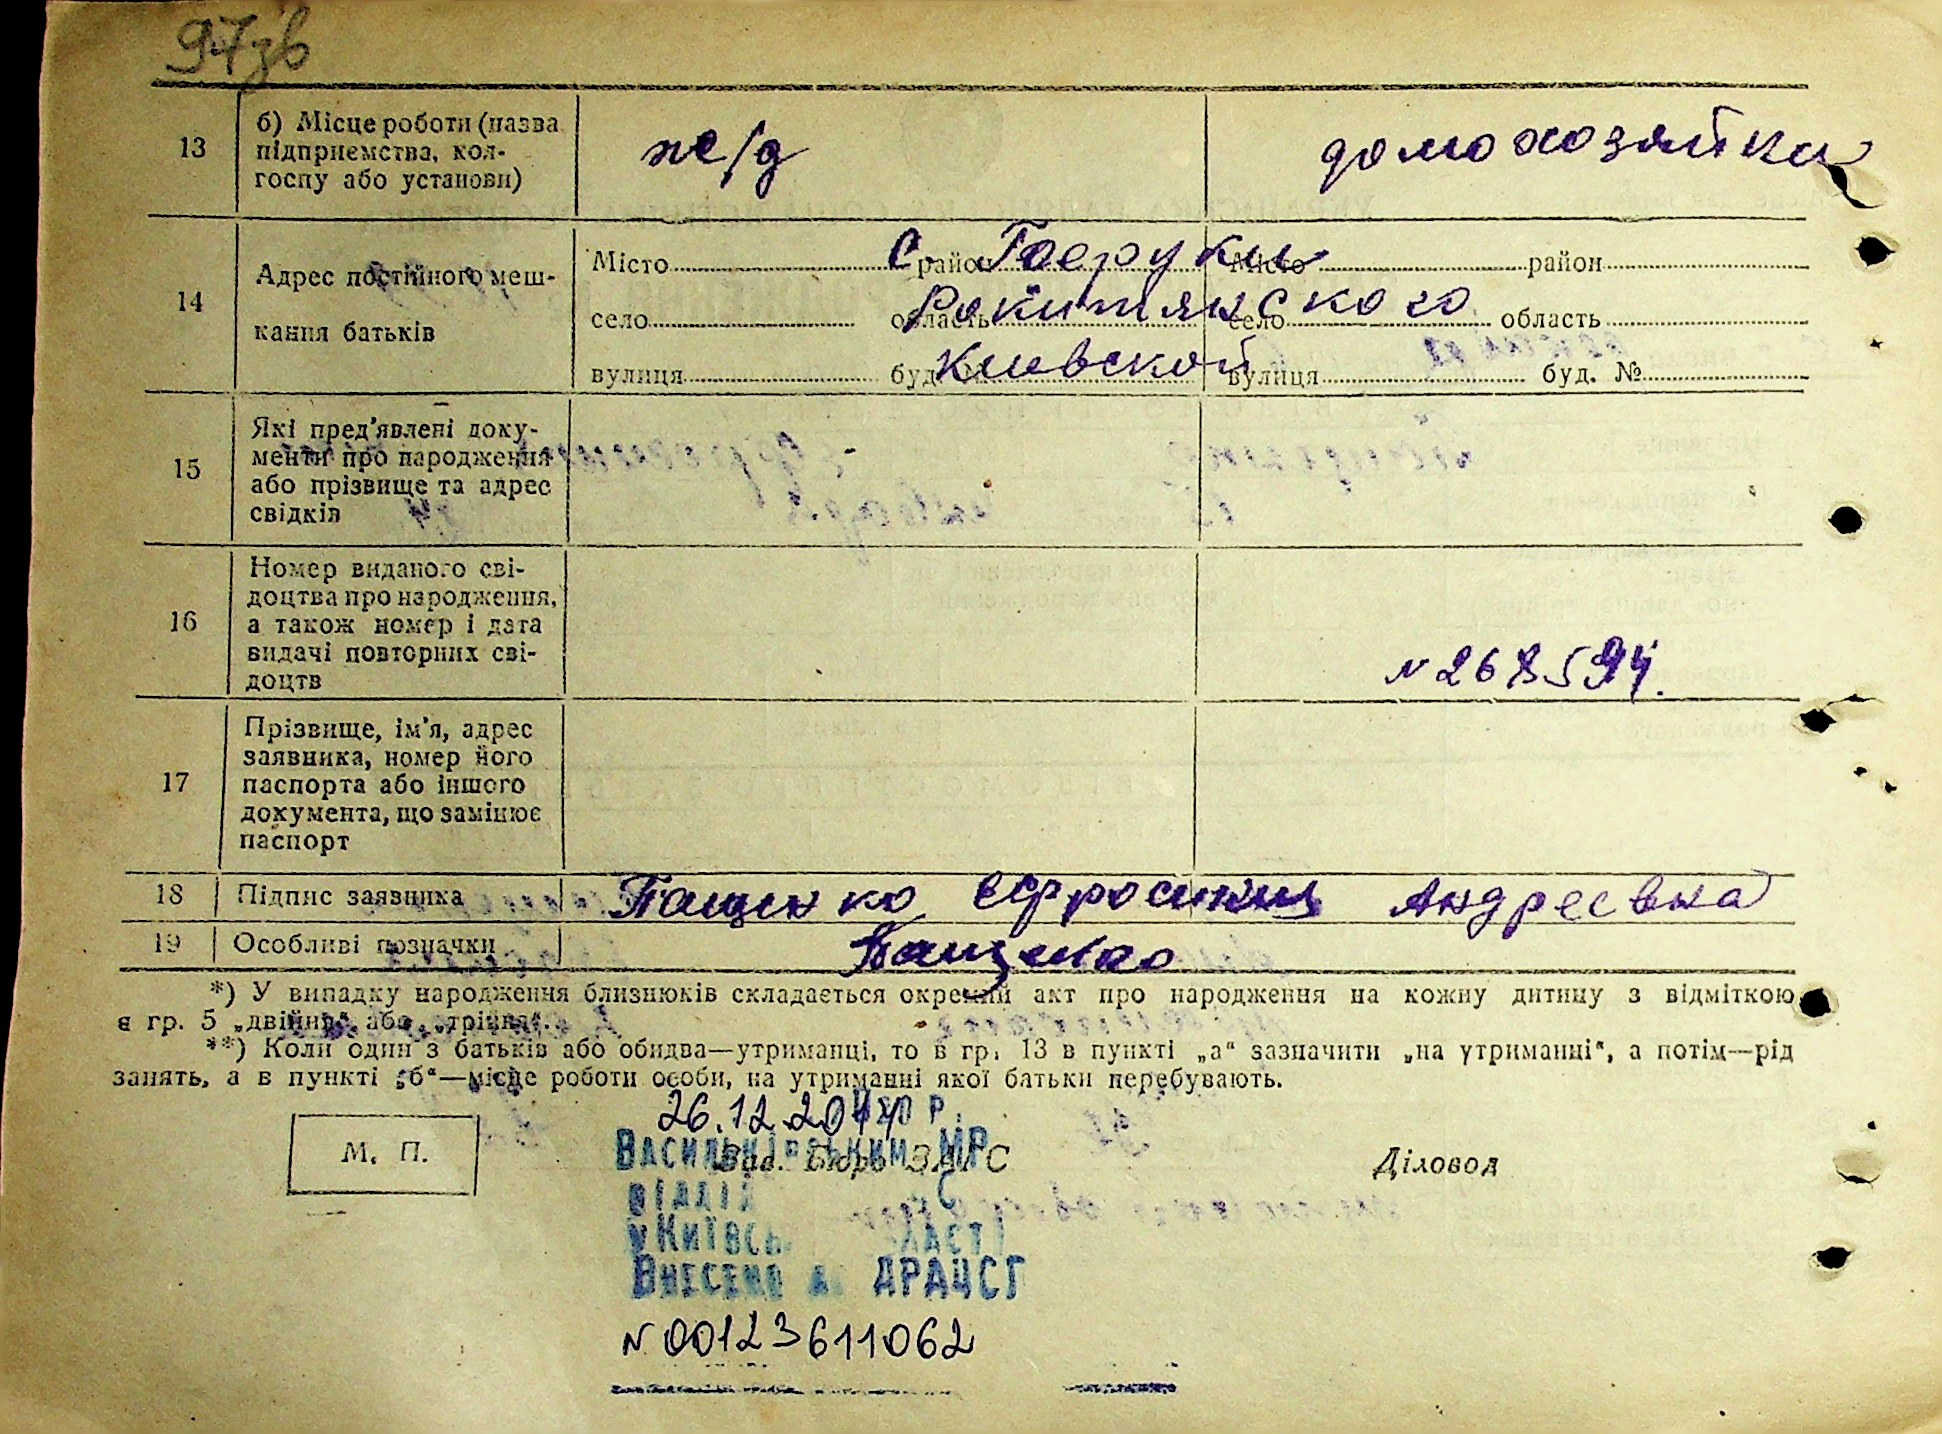 97зв
13
б) Місце роботи (назва
підприємства, кол-
госпу або установи)
ж/д
домохозяйка
14
Адрес постійного меш-
кання батьків
Місто район Місто район
село область село область
вулиця буд. № вулиця буд. №
с.
Рокитянского
Киевской
15
Які пред'явлені доку-
менти про народження
або прізвище та адрес
свідків
16
Номер виданого сві-
доцтва про народження,
а також номер і дата
видачі повторних сві-
доцтв
N 268594.
17
Прізвище, ім'я, адрес
заявника, номер його
паспорта або іншого
документа, що замінює
паспорт
18
Підпис заявника
Пащенко Ефросиния Андреевна
19
Особливі позначки
Пащенко
*) У випадку народження близнюків складається окремий акт про народження на кожну дитину з відміткою
в гр. 5 „двійня“ або „трійня“.
**) Коли один з батьків або обидва—утриманці, то в гр. 13 в пункті „а“ зазначити „на утриманні“, а потім—рід
занять, а в пункті „б“—місце роботи особи, на утриманні якої батьки перебувають.
М. П.
26.12.2014 р.
Васильківським МР
Зав. Бюро ЗАГС
Діловод
відділ С
у Київсь ласті
Внесено д ДРАЦСГ
N 00123611062